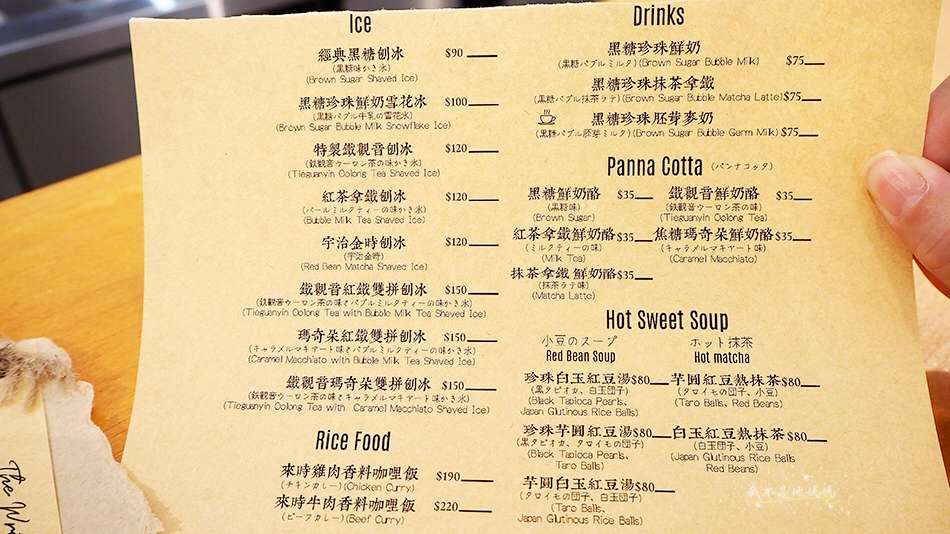 Ice
經典黑糖刨冰 $90
(黒糖味かき氷)
(Brown Sugar Shaved Ice)
黑糖珍珠鮮奶雪花冰 $100
(黒糖バブル牛乳の雪花氷)
(Brown Sugar Bubble Milk Snowflake Ice)
特製鐵觀音刨冰 $120
(鉄観音ウーロン茶の味かき氷)
(Tieguanyin Oolong Tea Shaved Ice)
紅茶拿鐵刨冰 $120
(パールミルクティーの味かき氷)
(Bubble Milk Tea Shaved Ice)
宇治金時刨冰 $120
(宇治金時)
(Red Bean Matcha Shaved Ice)
鐵觀音紅鐵雙拼刨冰 $150
(鉄観音ウーロン茶の味とバブルミルクティーの味かき氷)
(Tieguanyin Oolong Tea with Bubble Milk Tea Shaved Ice)
瑪奇朵紅鐵雙拼刨冰 $150
(キャラメルマキヤート味とバブルミルクティーの味かき氷)
(Caramel Macchiato with Bubble Milk Tea Shaved Ice)
鐵觀音瑪奇朵雙拼刨冰 $150
(鉄観音ウーロン茶の味とキャラメルマキヤート味かき氷)
(Tieguanyin Oolong Tea with Caramel Macchiato Shaved Ice)
Rice Food
來時雞肉香料咖哩飯 $190
(チキンカレー)(Chicken Curry)
來時牛肉香料咖哩飯 $220
(ビーフカレー)(Beef Curry)
Drinks
黑糖珍珠鮮奶
(黒糖バブルミルク)(Brown Sugar Bubble Milk) $75
黑糖珍珠抹茶拿鐵
(黒糖バブル抹茶ラテ)(Brown Sugar Bubble Matcha Latte) $75
黑糖珍珠胚芽麥奶
(黒糖バブル胚芽ミルク)(Brown Sugar Bubble Germ Milk) $75
Panna Cotta (パンナコッタ)
黑糖鮮奶酪 $35 鐵觀音鮮奶酪 $35
(黒糖味) (鉄観音ウーロン茶の味)
(Brown Sugar) (Tieguanyin Oolong Tea)
紅茶拿鐵鮮奶酪 $35 焦糖瑪奇朵鮮奶酪 $35
(ミルクティーの味) (キャラメルマキヤート味)
(Milk Tea) (Caramel Macchiato)
抹茶拿鐵 鮮奶酪 $35
(抹茶ラテ味)
(Matcha Latte)
Hot Sweet Soup
小豆のスープ ホット抹茶
Red Bean Soup Hot matcha
珍珠白玉紅豆湯 $80 芋圓紅豆熱抹茶 $80
(黒タピオカ、白玉団子) (タロイモの団子、小豆)
(Black Tapioca Pearls、 (Taro Balls、Red Beans)
Japan Glutinous Rice Balls)
珍珠芋圓紅豆湯 $80 白玉紅豆熱抹茶 $80
(黒タピオカ、タロイモの団子) (白玉団子、小豆)
(Black Tapioca Pearls、 (Japan Glutinous Rice Balls
Taro Balls) Red Beans)
芋圓白玉紅豆湯 $80
(タロイモの団子、白玉団子)
(Taro Balls、
Japan Glutinous Rice Balls)
The Wri